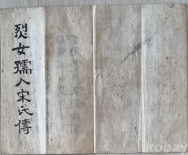 烈女孺人宋氏傳
kobay